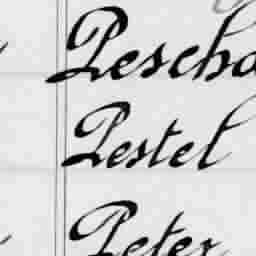 Pescha
Pestel
Peter